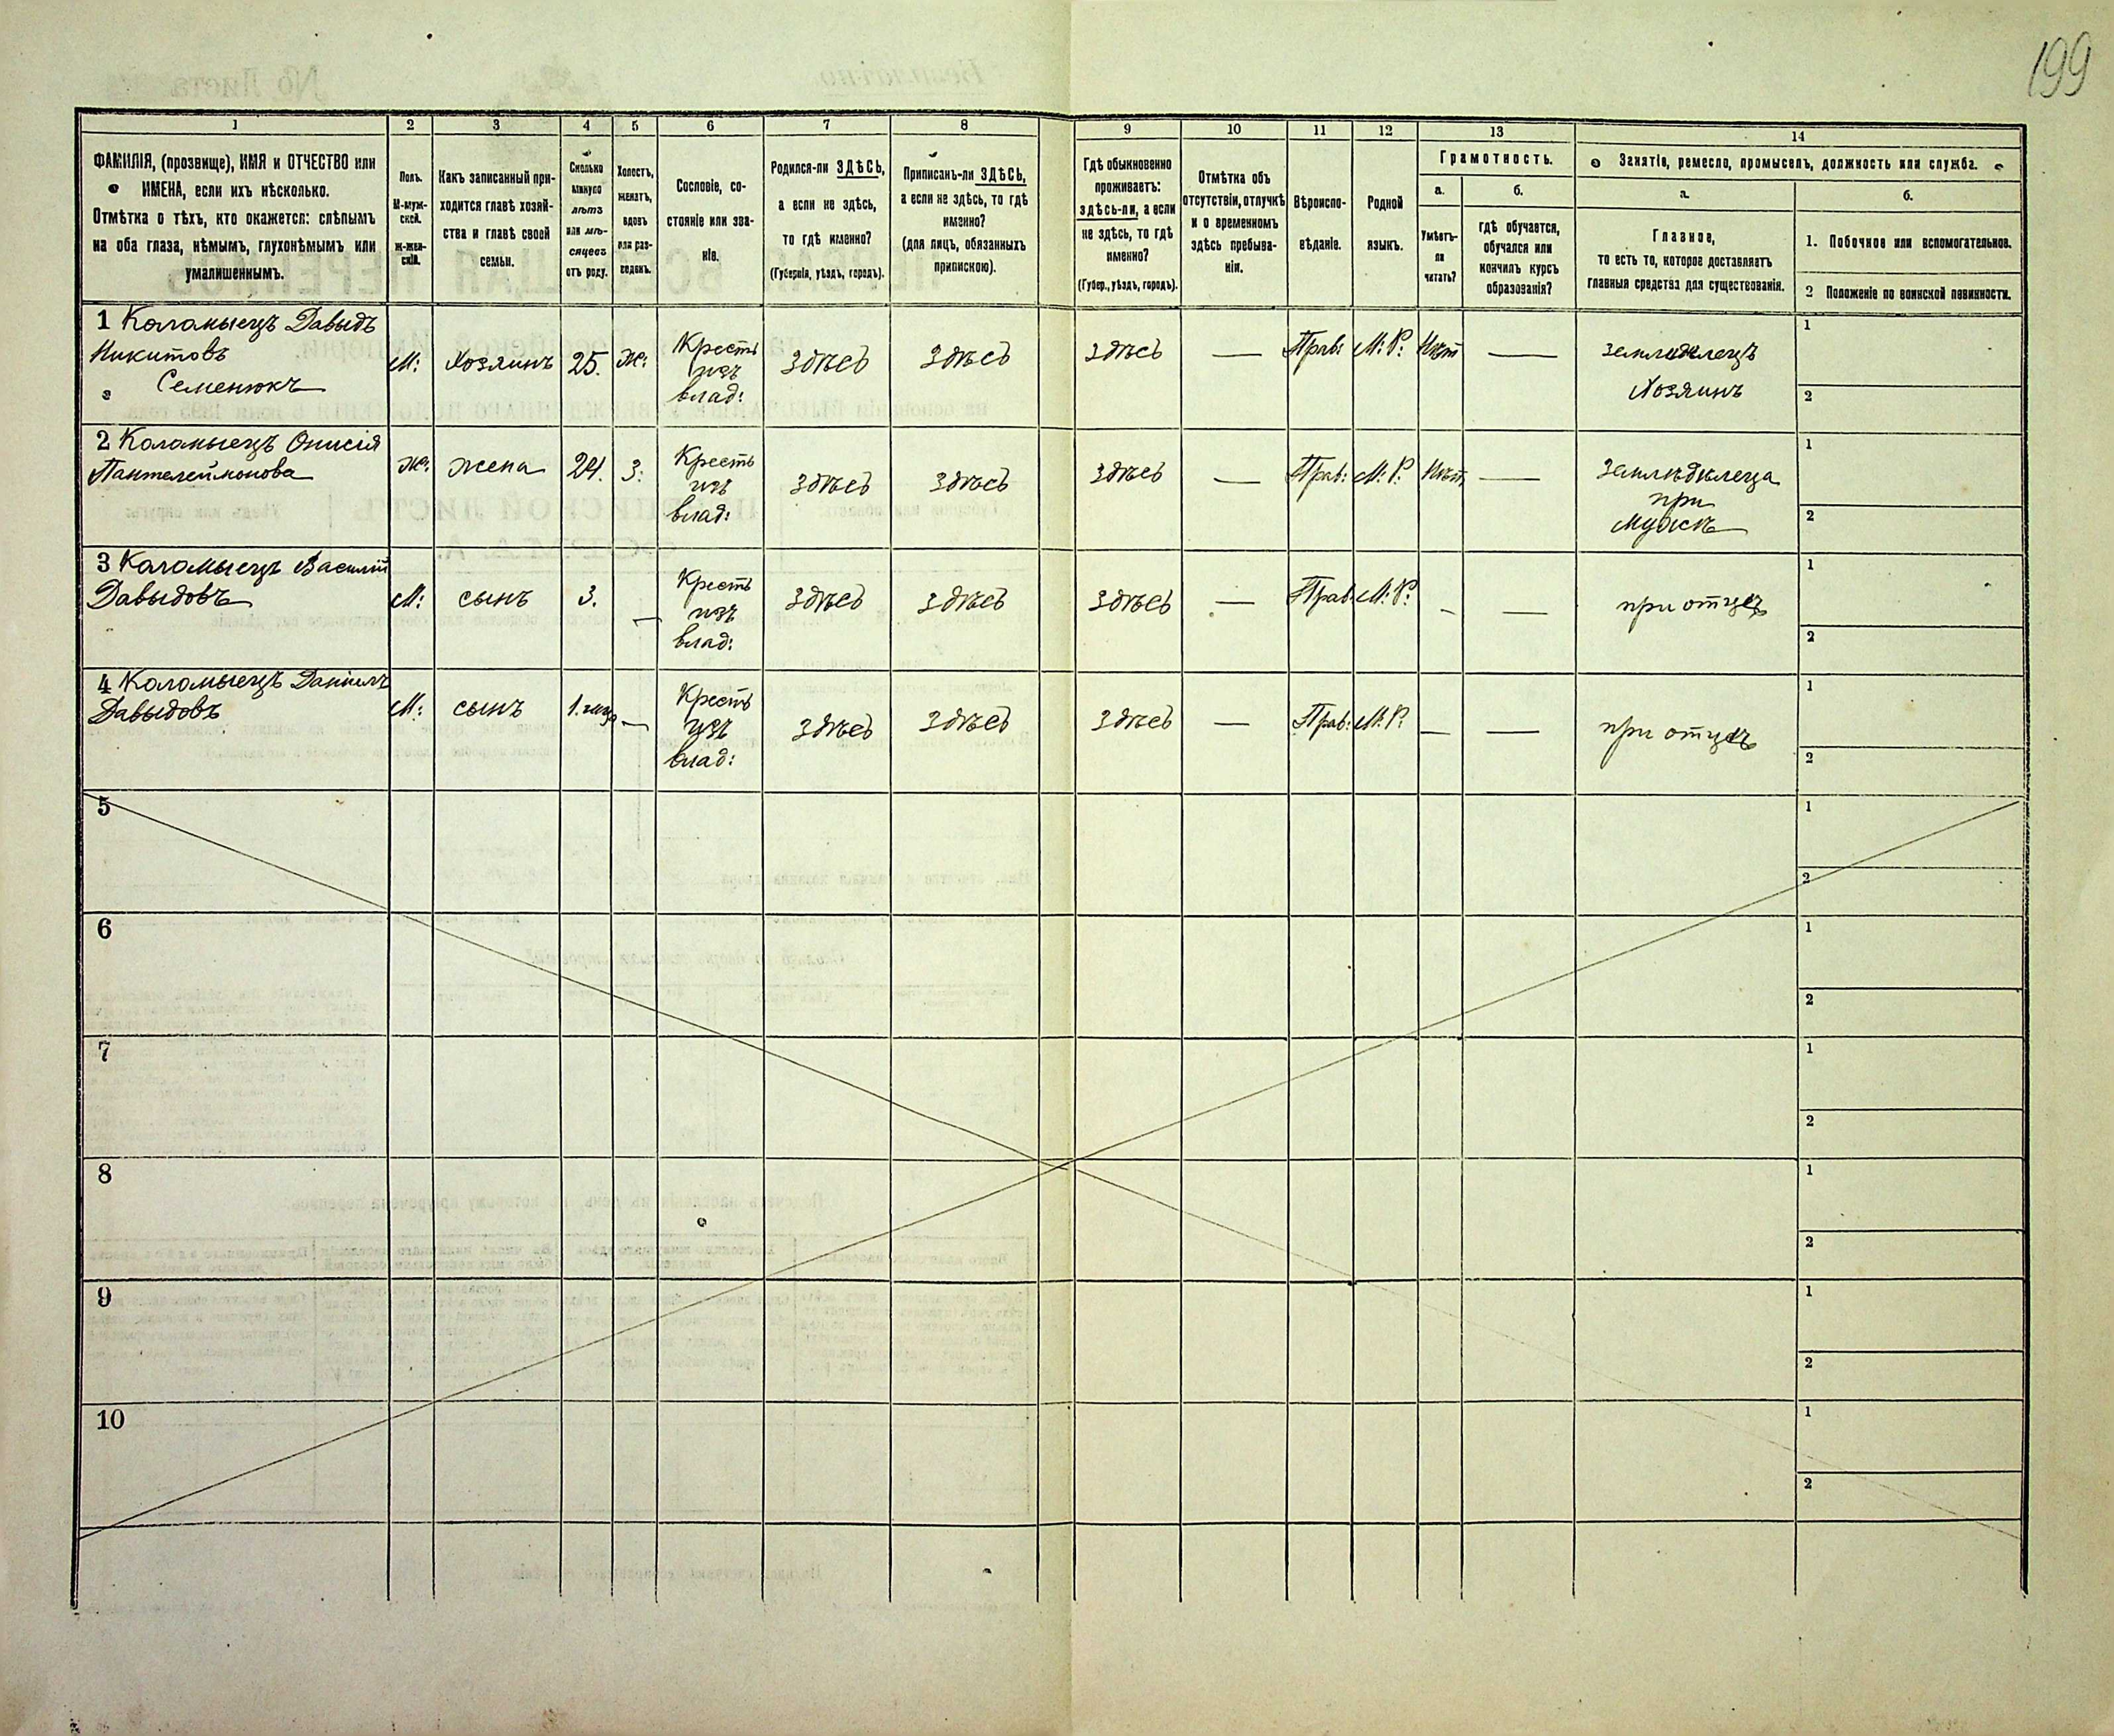 199
1
2
3
4
5
6
7
8
9
10
11
12
13
14
ФАМИЛІЯ, (прозвище), ИМЯ и ОТЧЕСТВО или
ИМЕНА, если ихъ нѣсколько.
Отмѣтка о тѣхъ, кто окажется: слѣпымъ
на оба глаза, нѣмымъ, глухонѣмымъ или
умалишеннымъ.
Полъ.
М-муж-
ской.
Ж-жен-
скій.
Какъ записанный при-
ходится главѣ хозяй-
ства и главѣ своей
семьи.
Сколько
минуло
лѣтъ
или мѣ-
сяцевъ
отъ роду.
Холостъ,
женатъ,
вдовъ
или раз-
веденъ.
Сословіе, со-
стояніе или зва-
ніе.
Родился-ли ЗДѢСЬ,
а если не здѣсь,
то гдѣ именно?
(Губернія, уѣздъ, городъ).
Приписанъ-ли ЗДѢСЬ,
а если не здѣсь, то гдѣ
именно?
(для лицъ, обязанныхъ
припискою).
Гдѣ обыкновенно
проживаетъ:
здѣсь-ли, а если
не здѣсь, то гдѣ
именно?
(Губер., уѣздъ, городъ).
Отмѣтка объ
отсутствіи, отлучкѣ
и о временномъ
здѣсь пребыва-
ніи.
Вѣроиспо-
вѣданіе.
Родной
языкъ.
Грамотность.
а.
Умѣетъ-
ли
читать?
б.
гдѣ обучается,
обучался или
кончилъ курсъ
образованія?
Занятіе, ремесло, промыселъ, должность или служба.
а.
Главное,
то есть то, которое доставляетъ
главныя средства для существованія.
б.
1. Побочное или вспомогательное.
2 Положеніе по воинской повинности.
1 Коломыецъ Давыдъ
Никитовъ
Семенюкъ
М:
Хозяинъ
25.
Ж:
Кресть
изъ
влад:
Здѣсь
Здѣсь
Здѣсь
—
Прав:
М: Р:
Нѣт
—
Земледѣлецъ
Хозяинъ
1
2
2 Коломыецъ Онисія
Пантелеймонова
Ж:
жена
24.
З:
Кресть
изъ
влад:
Здѣсь
Здѣсь
Здѣсь
—
Прав:
М: Р:
Нѣт
—
Землѣдѣлеца
при
мужѣ
1
2
3 Коломыецъ Василій
Давыдовъ
М:
сынъ
3.
—
Кресть
изъ
влад:
Здѣсь
Здѣсь
Здѣсь
—
Прав:
М: Р:
—
—
при отцѣ
1
2
4 Коломыецъ Даніилъ
Давыдовъ
М:
сынъ
—
Кресть
изъ
влад:
Здѣсь
Здѣсь
Здѣсь
—
Прав:
М: Р:
—
—
при отцѣ
1
2
5
1
2
6
1
2
7
1
2
8
1
2
9
1
2
10
1
2